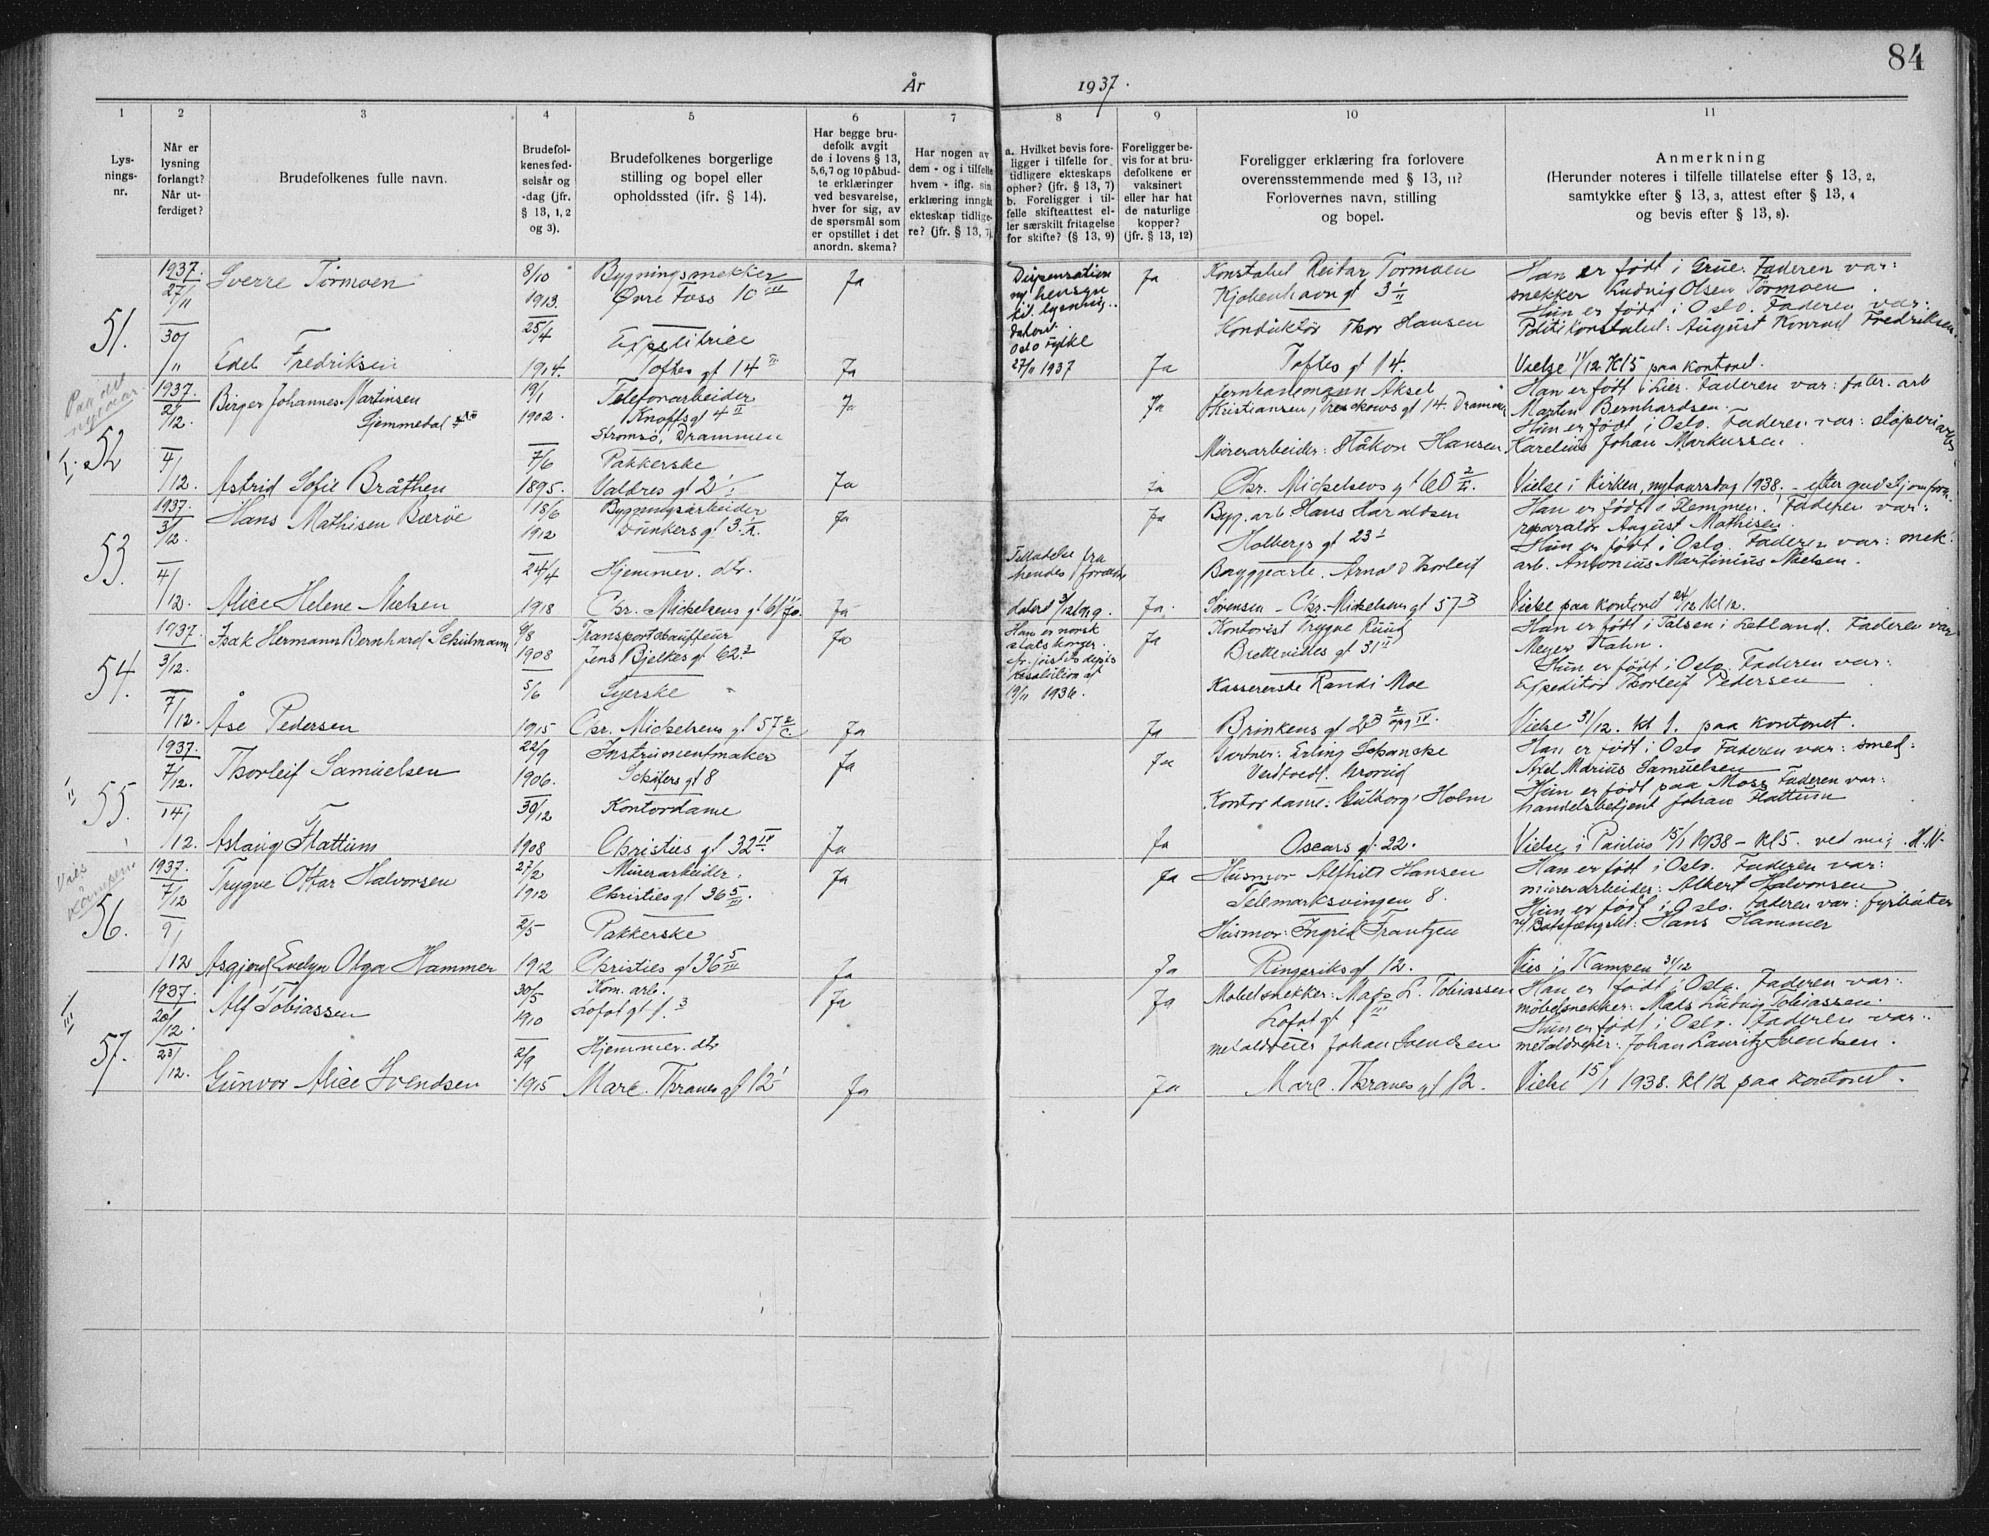 84
År 1937.
1 2 3 4 5 6 7 8 9 10 11
Lys-
nings-
nr.
Når er
lysning
forlangt?
Når ut-
ferdiget?
Brudefolkenes fulle navn.
Brudefol-
kenes fød-
selsår og
-dag (jfr.
§ 13, 1, 2
og 3).
Brudefolkenes borgerlige
stilling og bopel eller
opholdssted (ifr. § 14).
Har begge bru-
defolk avgit
de i lovens § 13,
5, 6, 7 og 10 påbud-
te erklæringer
ved besvarelse,
hver for sig, av
de spørsmål som
er opstillet i det
anordn. skema?
Har nogen av
dem - og i tilfelle
hvem - iflg. sin
erklæring inngått
ekteskap tidlige-
re? (jfr. § 13, 7)
a. Hvilket bevis fore-
ligger i tilfelle for
tidligere ekteskaps
ophør? (jfr. § 13, 7)
b. Foreligger i til-
felle skifteattest el-
ler særskilt fritagelse
for skifte? (§ 13, 9)
Foreligger be-
vis for at bru-
defolkene er
vaksinert
eller har hat
de naturlige
kopper?
(jfr. § 13, 12)
Foreligger erklæring fra forlovere
overensstemmende med § 13, 11?
Forlovernes navn, stilling
og bopel.
Anmerkning
(Herunder noteres i tilfelle tillatelse efter § 13, 2,
samtykke efter § 13, 3, attest efter § 13, 4
og bevis efter § 13, 8).
51.
1937.
27/11
30/11
Sverre Tormoen
Edel Fredriksen
8/10
1913.
25/4
1914.
Bygningsnekker
Øvre Foss 10 III
Expeditrice
Toftes gt 14 II
Ja
Ja
Dispensation
m/ hensyn
til lysning
dater.
Oslo Fylke
27/11 1937
Ja
Ja
Konstabel Reitar Tormoen
Kjøbenhavn gt 3 1/II
Konduktør Thor Hansen
Toftes gt 14.
Han er født i Grue. Faderen var:
snekker Ludvig Olsen Tormoen.
Hun er født i Oslo. Faderen var:
Politikonstabel: August Konrad Fredriksen.
Vielse 11/12 Kl 5 paa kontoret.
Paa det
52
1937.
2/12.
4/12.
Birger Johannes Martinsen
Gjemmedal
Astrid Sofie Bråthen
19/1
1902.
7/6
1895.
Telefonarbeider
Knoffs gt 4 II
Strømsø, Drammen
Pakkerske
Valdres gt 2 I
Ja
Ja
Ja
Ja
Aksel
Kristiansen, Treschows gt 14. Drammen
Murerarbeider: Håkon Hansen
Chr. Michelsens gt 60 2/II
Han er født i Lier. Faderen var: fabr. arb
Martin Bernhardsen.
Hun er født i Oslo. Faderen var: støperi arb
Karelius Johan Markussen.
Vielse i Kirken, nytaarsdag 1938. - efter gudstj
53.
1937.
3/12.
4/12.
Hans Mathisen Bærøe
Alice Helene Nielsen
18/6
1912
24/4
1918
Bygningsarbeider
Dunkers gt 3.
Hjemmev. dtr.
Chr. Michelsens gt 61
Ja
Ja
Tilladelse fra
hendes forældre
datert 3/12
Ja
Ja.
Byg. arb Hans Haraldsen
Holbergs gt 23 I
Bryggearb. Arnold Thorleif
Sørensen - Chr. Michelsens gt 57
Han er født i Flemmen. Faderen var:
reparatør August Mathisen.
Hun er født i Oslo. Faderen var: mek.
arb. Antonius Martinius Nielsen.
Vielse paa kontoret 24/12 kl 12.
54.
1937.
3/12.
7/12.
Isak Hermann Bernhard Schulmann
Åse Pedersen
6/8
1908
5/6
1915
Transportchauffeur
Jens Bjelkes gt 62
Syerske
Chr. Michelsens gt 57
Ja
Ja
Han er norsk
statsborger
fr. justisdepts
resolution af
19/11 1936.
Ja
Ja
Kontorist Trygve Ruud
gt 31 II
Kassererske Randi Moe
Brinkens gt 23 opg IV.
Han er født i Talsen i Letland. Faderen var
Meyer Hahn.
Hun er født i Oslo. Faderen var:
Expeditør Thorleif Pedersen
Vielse 31/12. kl 1. paa kontoret.
II
55.
1937.
7/12.
14/12.
Thorleif Samuelsen
Aslaug Flattum
22/9
1906.
30/12
1908
Instrumentmaker
Schäfers gt 8
Kontordame
Christies gt 32 IV.
Ja
Ja
Ja
Ja
Gartner: Erling Schanske
Grorud
Kontordame: Gulborg Holm
Oscars gt. 22.
Han er født i Oslo Faderen var: smed:
Axel Marius Samuelsen
Hun er født paa Moss Faderen var:
handelsbetjent Johan Flattum
Vielse i Paulus 15/1 1938 - kl 5. ved mig. H. N.
Vies
Kampen
56.
1937.
7/12
9/12
Trygve Ottar Halvorsen
Asgjerd Evelyn Olga Hammer
27/2
1912
2/5
1912
Murerarbeider.
Christies gt 36 5/III.
Pakkerske
Christies gt 36 5/III
Ja
Ja
Ja
Ja
Husmor Alfhild Hansen
Telemarksvingen 8.
Husmor: Ingrid Frantzen
Ringeriks gt 12.
Han er født i Oslo. Faderen var:
murerarbeider: Albert Halvorsen
Hun er født i Oslo. Faderen var: fyrbøter
v/ Botsfængslet: Hans Hammer
Vies i Kampen 31/12
III
57.
1937.
20/12.
23/12.
Alf Tobiassen
Gunvor Alice Svendsen
30/5
1910
2/9
1915
Kom. arb.
Lofot gt 1. 3
Hjemmev. dtr
Marc. Thranes gt 12 I
Ja
Ja
Ja
Ja
Møbelsnekker: Mads L. Tobiassen
Lofot gt 1 III
Johan Svendsen
Marc. Thranes gt 12.
Han er født i Oslo. Faderen var:
møbelsnekker: Mads Ludvig Tobiassen.
Hun er født i Oslo. Faderen var:
Johan Lauritz Svendsen.
Vielse 15/1 1938. kl 12 paa kontoret.